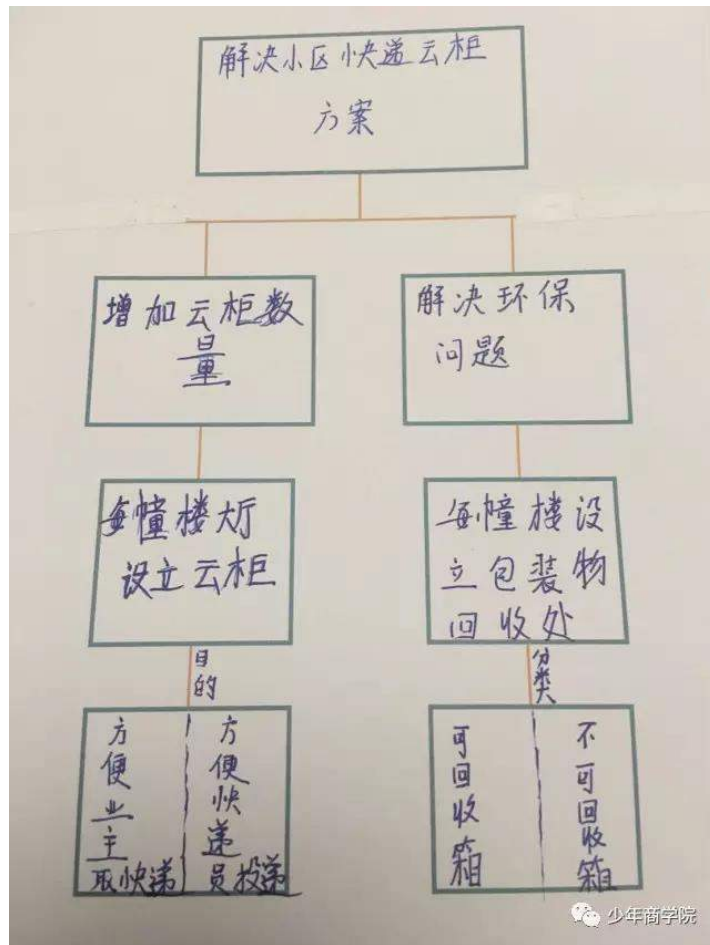 解决小区快递云柜
方案
增加云柜数
量
解决环保
问题
每幢楼大厅
设立云柜
每幢楼设
立包装物
回收处
目的
分类
方便业主
取快递
方便快递
员投递
可回收箱
不可回收箱
少年商学院